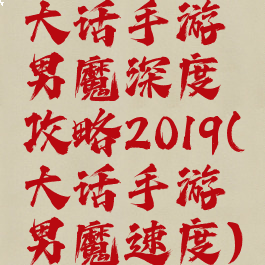 大话手游
男魔深度
攻略2019(
大话手游
男魔速度)